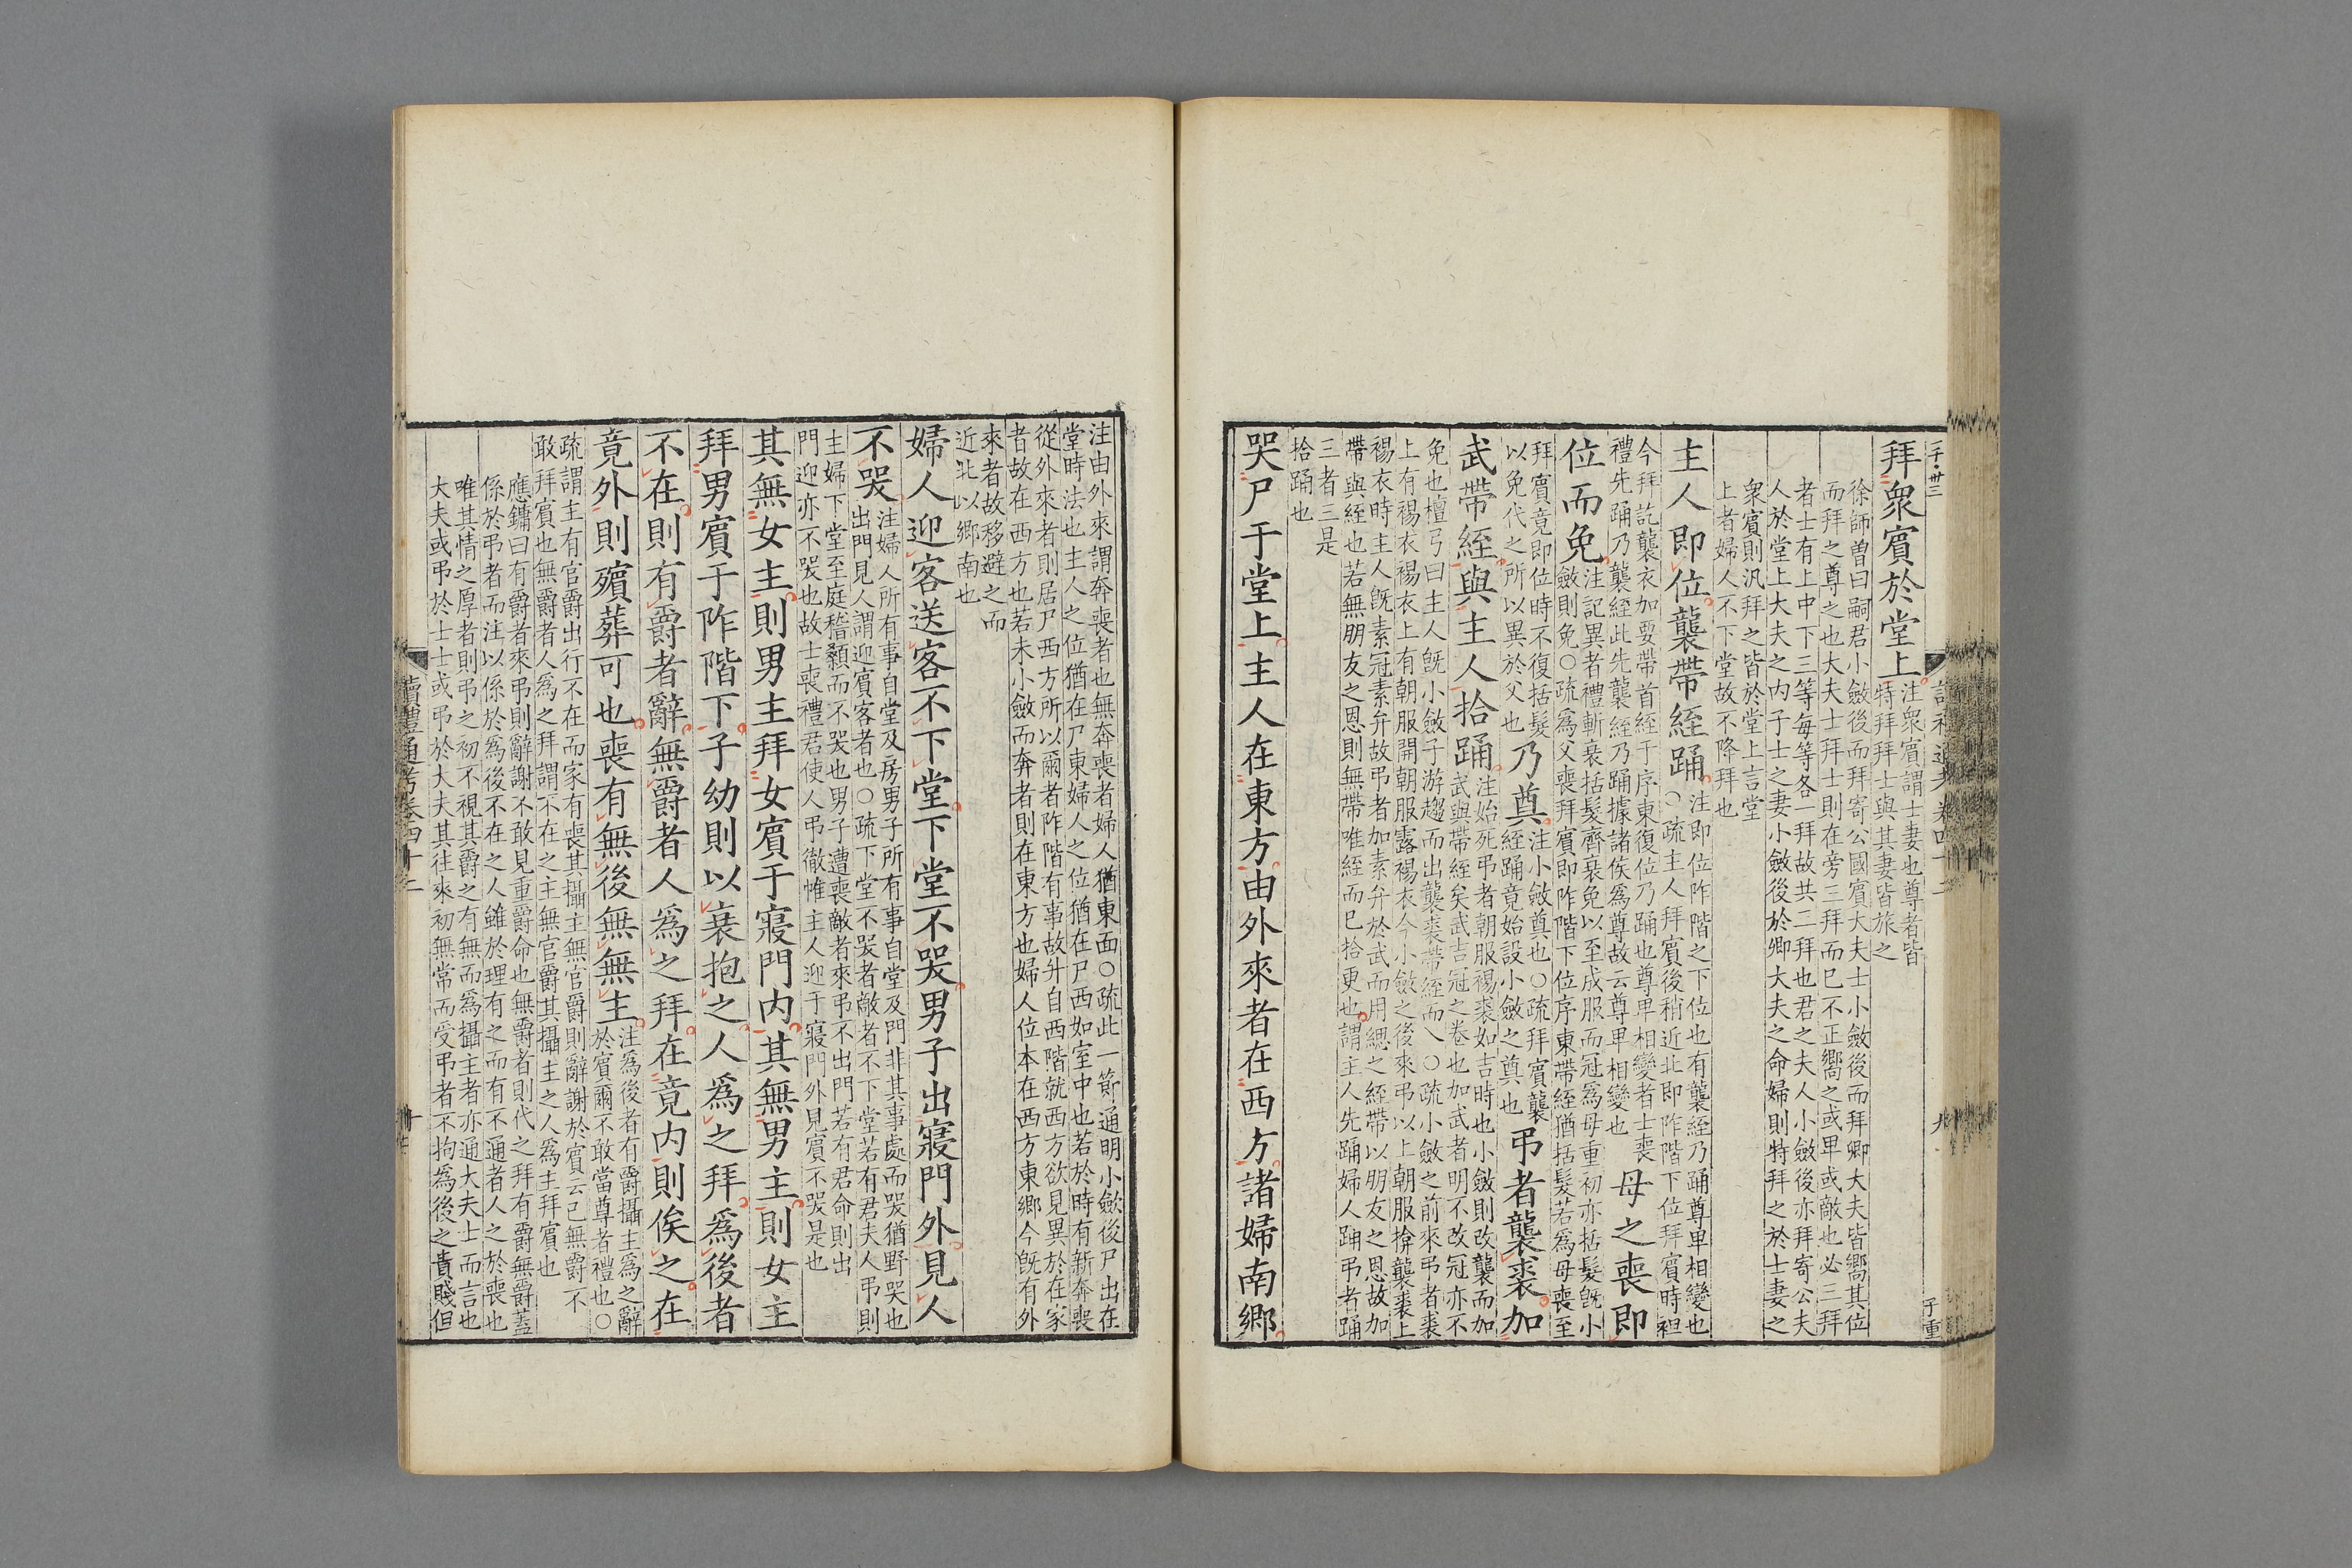 二子·卅三
讀禮通考卷四十二
九
子重
拜衆賓於堂上注衆賓謂士妻也尊者皆
特拜拜士與其妻皆旅之
徐師曾曰嗣君小斂後而拜寄公國賓大夫士小斂後而拜卿大夫皆嚮其位
而拜之尊之也大夫士拜士則在旁三拜而已不正嚮之或卑或敵也必三拜
者士有上中下三等每等各一拜故共二拜也君之夫人小斂後亦拜寄公夫
人於堂上大夫之内子士之妻小斂後於卿大夫之命婦則特拜之於士妻之
衆賓則汎拜之皆於堂上言堂
上者婦人不下堂故不降拜也
主人即位襲帶絰踊注即位阼階之下位也有襲絰乃踊尊卑相變也
○疏主人拜賓後稍近北即阼階下位拜賓時袒
今拜訖襲衣加要帶首絰于序東復位乃踊也尊卑相變者士喪
禮先踊乃襲絰此先襲絰乃踊據諸侯爲尊故云尊卑相變也母之喪即
位而免注記異者禮斬衰括髮齊衰免以至成服而冠爲母重初亦括髮旣小
斂則免○疏爲父喪拜賓即阼階下位序東帶絰猶括髮若爲母喪至
拜賓竟即位時不復括髮
以免代之所以異於父也乃奠注小斂奠也○疏拜賓襲
絰踊竟始設小斂之奠也弔者襲裘加
武帶絰與主人拾踊注始死弔者朝服裼裘如吉時也小斂則改襲而加
武與帶絰矣武吉冠之卷也加武者明不改冠亦不
免也檀弓曰主人旣小斂子游趨而出襲裘帶絰而入○疏小斂之前來弔者裘
上有裼衣裼衣上有朝服開朝服露裼衣今小斂之後來弔以上朝服揜襲裘上
裼衣時主人旣素冠素弁故弔者加素弁於武而用緦之絰帶以朋友之恩故加
帶與絰也若無朋友之恩則無帶唯絰而已拾更也謂主人先踊婦人踊弔者踊
三者三是
拾踊也
哭尸于堂上主人在東方由外來者在西方諸婦南鄉
注由外來謂奔喪者也無奔喪者婦人猶東面○疏此一節通明小斂後尸出在
堂時法也主人之位猶在尸東婦人之位猶在尸西如室中也若於時有新奔喪
從外來者則居尸西方所以爾者阼階有事故升自西階就西方欲見異於在家
者故在西方也若未小斂而奔者則在東方也婦人位本在西方東鄉今旣有外
來者故移避之而
近北以鄉南也
婦人迎客送客不下堂下堂不哭男子出寢門外見人
不哭注婦人所有事自堂及房男子所有事自堂及門非其事處而哭猶野哭也
出門見人謂迎賓客者也○疏下堂不哭者敵者不下堂若有君夫人弔則
主婦下堂至庭稽顙而不哭也男子遭喪敵者來弔不出門若有君命則出
門迎亦不哭也故士喪禮君使人弔徹帷主人迎于寢門外見賓不哭是也
其無女主則男主拜女賓于寢門内其無男主則女主
拜男賓于阼階下子幼則以衰抱之人爲之拜爲後者
不在則有爵者辭無爵者人爲之拜在竟内則俟之在
竟外則殯葬可也喪有無後無無主注爲後者有爵攝主爲之辭
於賓爾不敢當尊者禮也○
疏謂主有官爵出行不在而家有喪其攝主無官爵則辭謝於賓云已無爵不
敢拜賓也無爵者人爲之拜謂不在之主無官爵其攝主之人爲主拜賓也
應鏞曰有爵者來弔則辭謝不敢見重爵命也無爵者則代之拜有爵無爵蓋
係於弔者而注以係於爲後不在之人雖於理有之而有不通者人之於喪也
唯其情之厚者則弔之初不視其爵之有無而爲攝主者亦通大夫士而言也
大夫或弔於士士或弔於大夫其往來初無常而受弔者不拘爲後之貴賤但
讀禮通考卷四十二